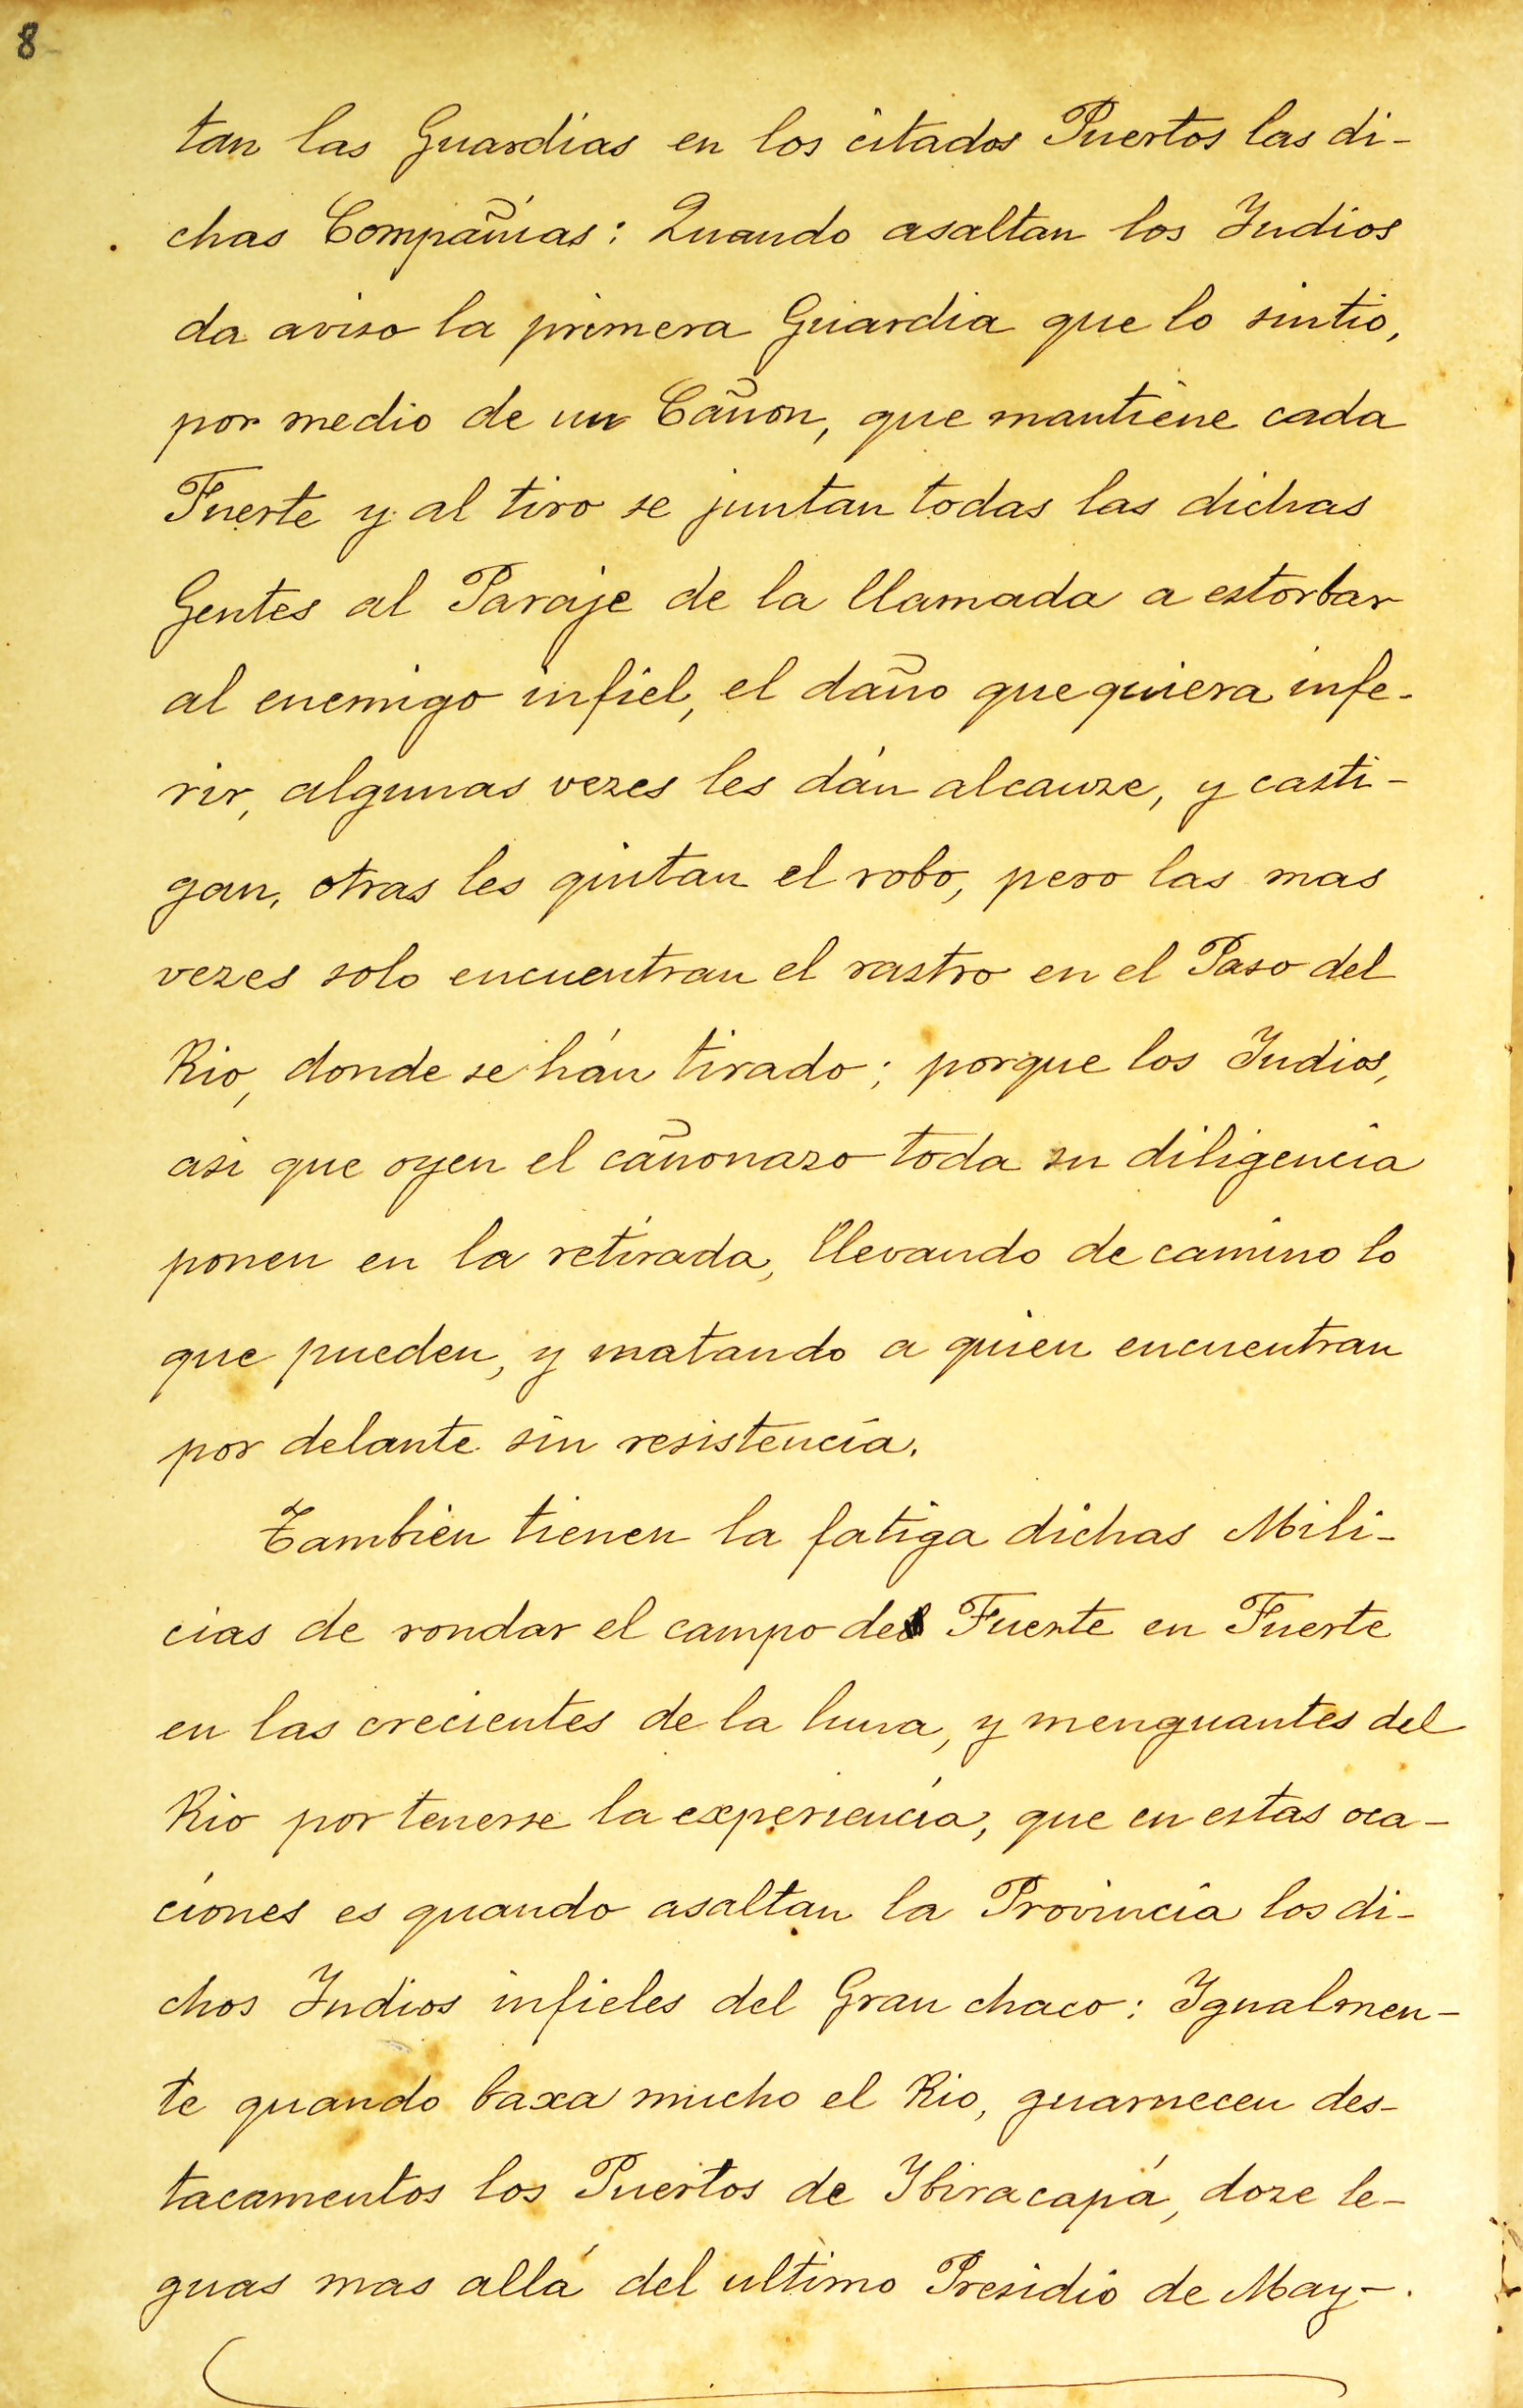 8
tan las Guardias en los citados Puertos las di-
chas Compañias: Quando asaltan los Indios
da aviso la primera Guardia que lo sintio,
por medio de un Cañon, que mantiene cada
Fuerte y al tiro se juntan todas las dichas
Gentes al Paraje de la llamada a estorbar
al enemigo infiel, el daño que quiera infe-
rir, algunas vezes les dán alcanze, y casti-
gan, otras les quitan el robo, pero las mas
vezes solo encuentran el rastro en el Paso del
Rio, donde se hán tirado; porque los Indios,
asi que oyen el cañonazo toda su diligencia
ponen en la retirada, llevando de camino lo
que pueden, y matando a quien encuentran
por delante sin resistencia.
Tambien tienen la fatiga dichas Mili-
cias de rondar el campo de Fuerte en Fuerte
en las crecientes de la luna, y menguantes del
Rio por tenerse la experiencia, que en estas oca-
ciones es quando asaltan la Provincia los di-
chos Indios infieles del Gran chaco: Igualmen-
te quando baxa mucho el Rio, guarnecen des-
tacamentos los Puertos de Ybiracapá, doze le-
guas mas allá del ultimo Presidio de May-.